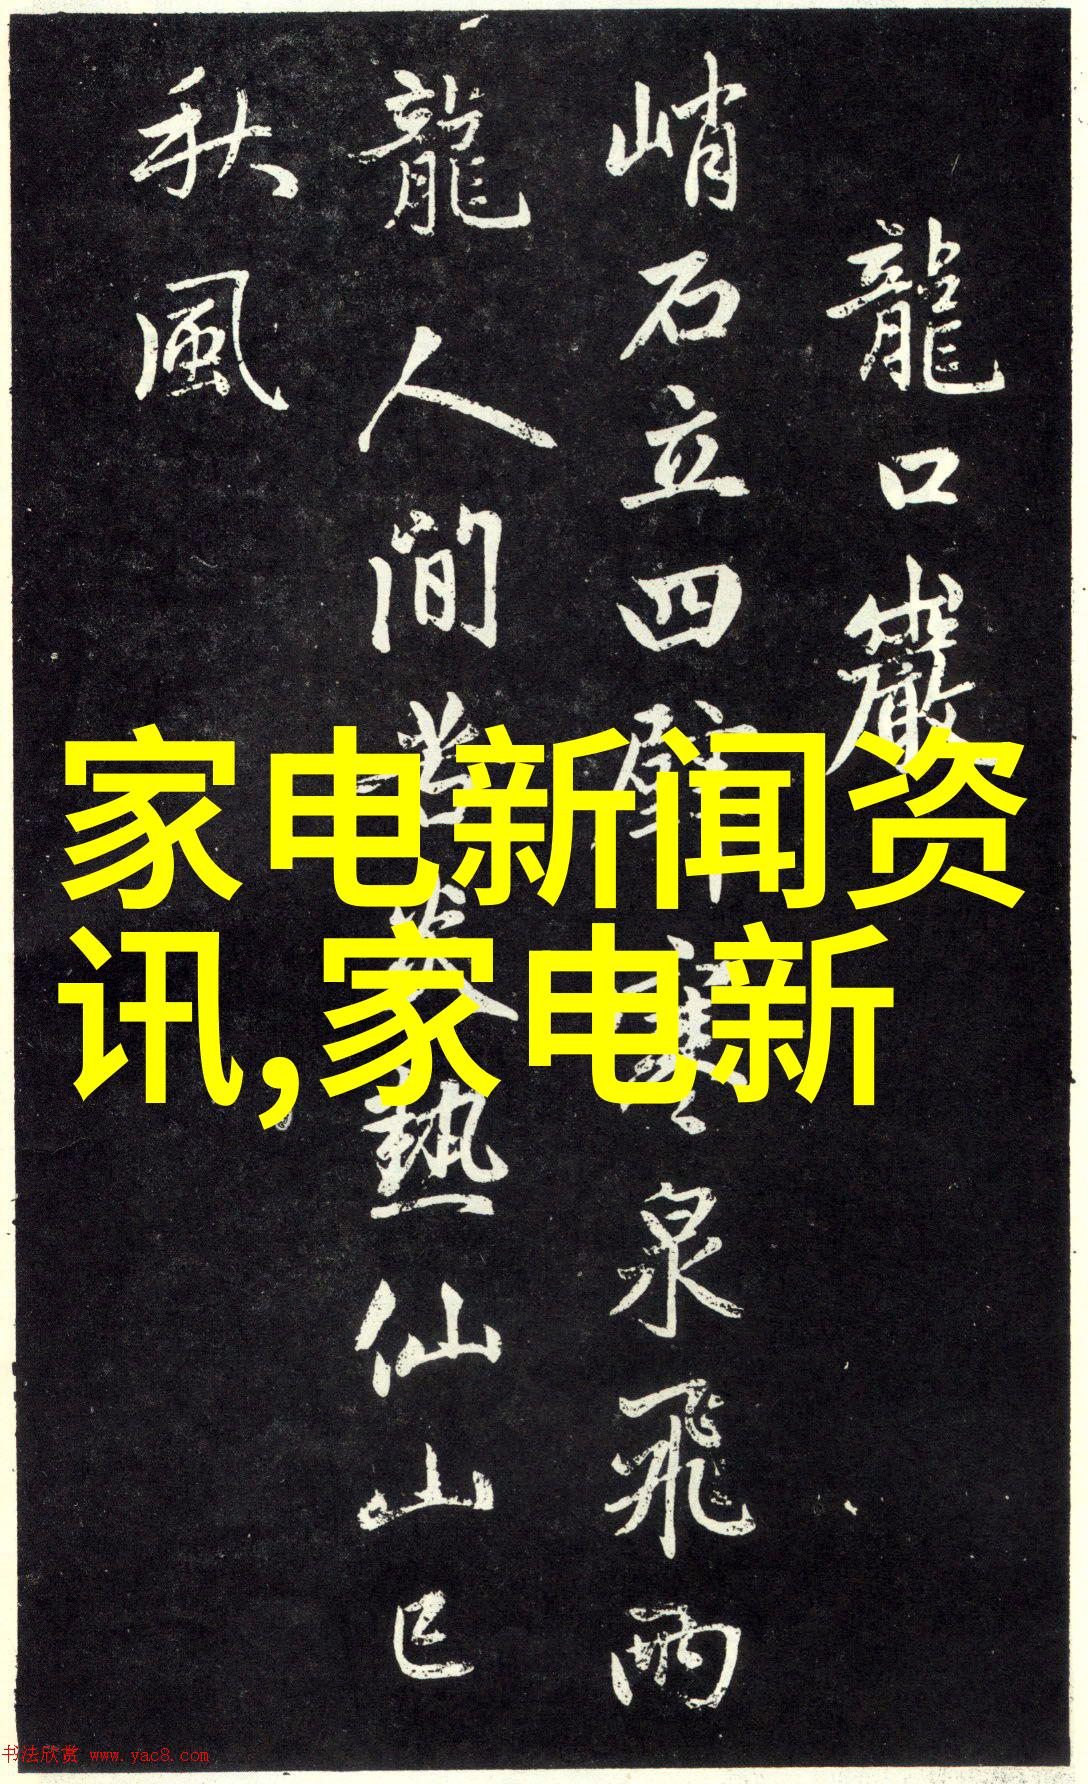 龍口巖
峭石立四壁寒泉飛雨
龍人間苦炎熱仙山已
秋風
家电新闻资
讯,家电新
书法欣赏 www.yac8.com